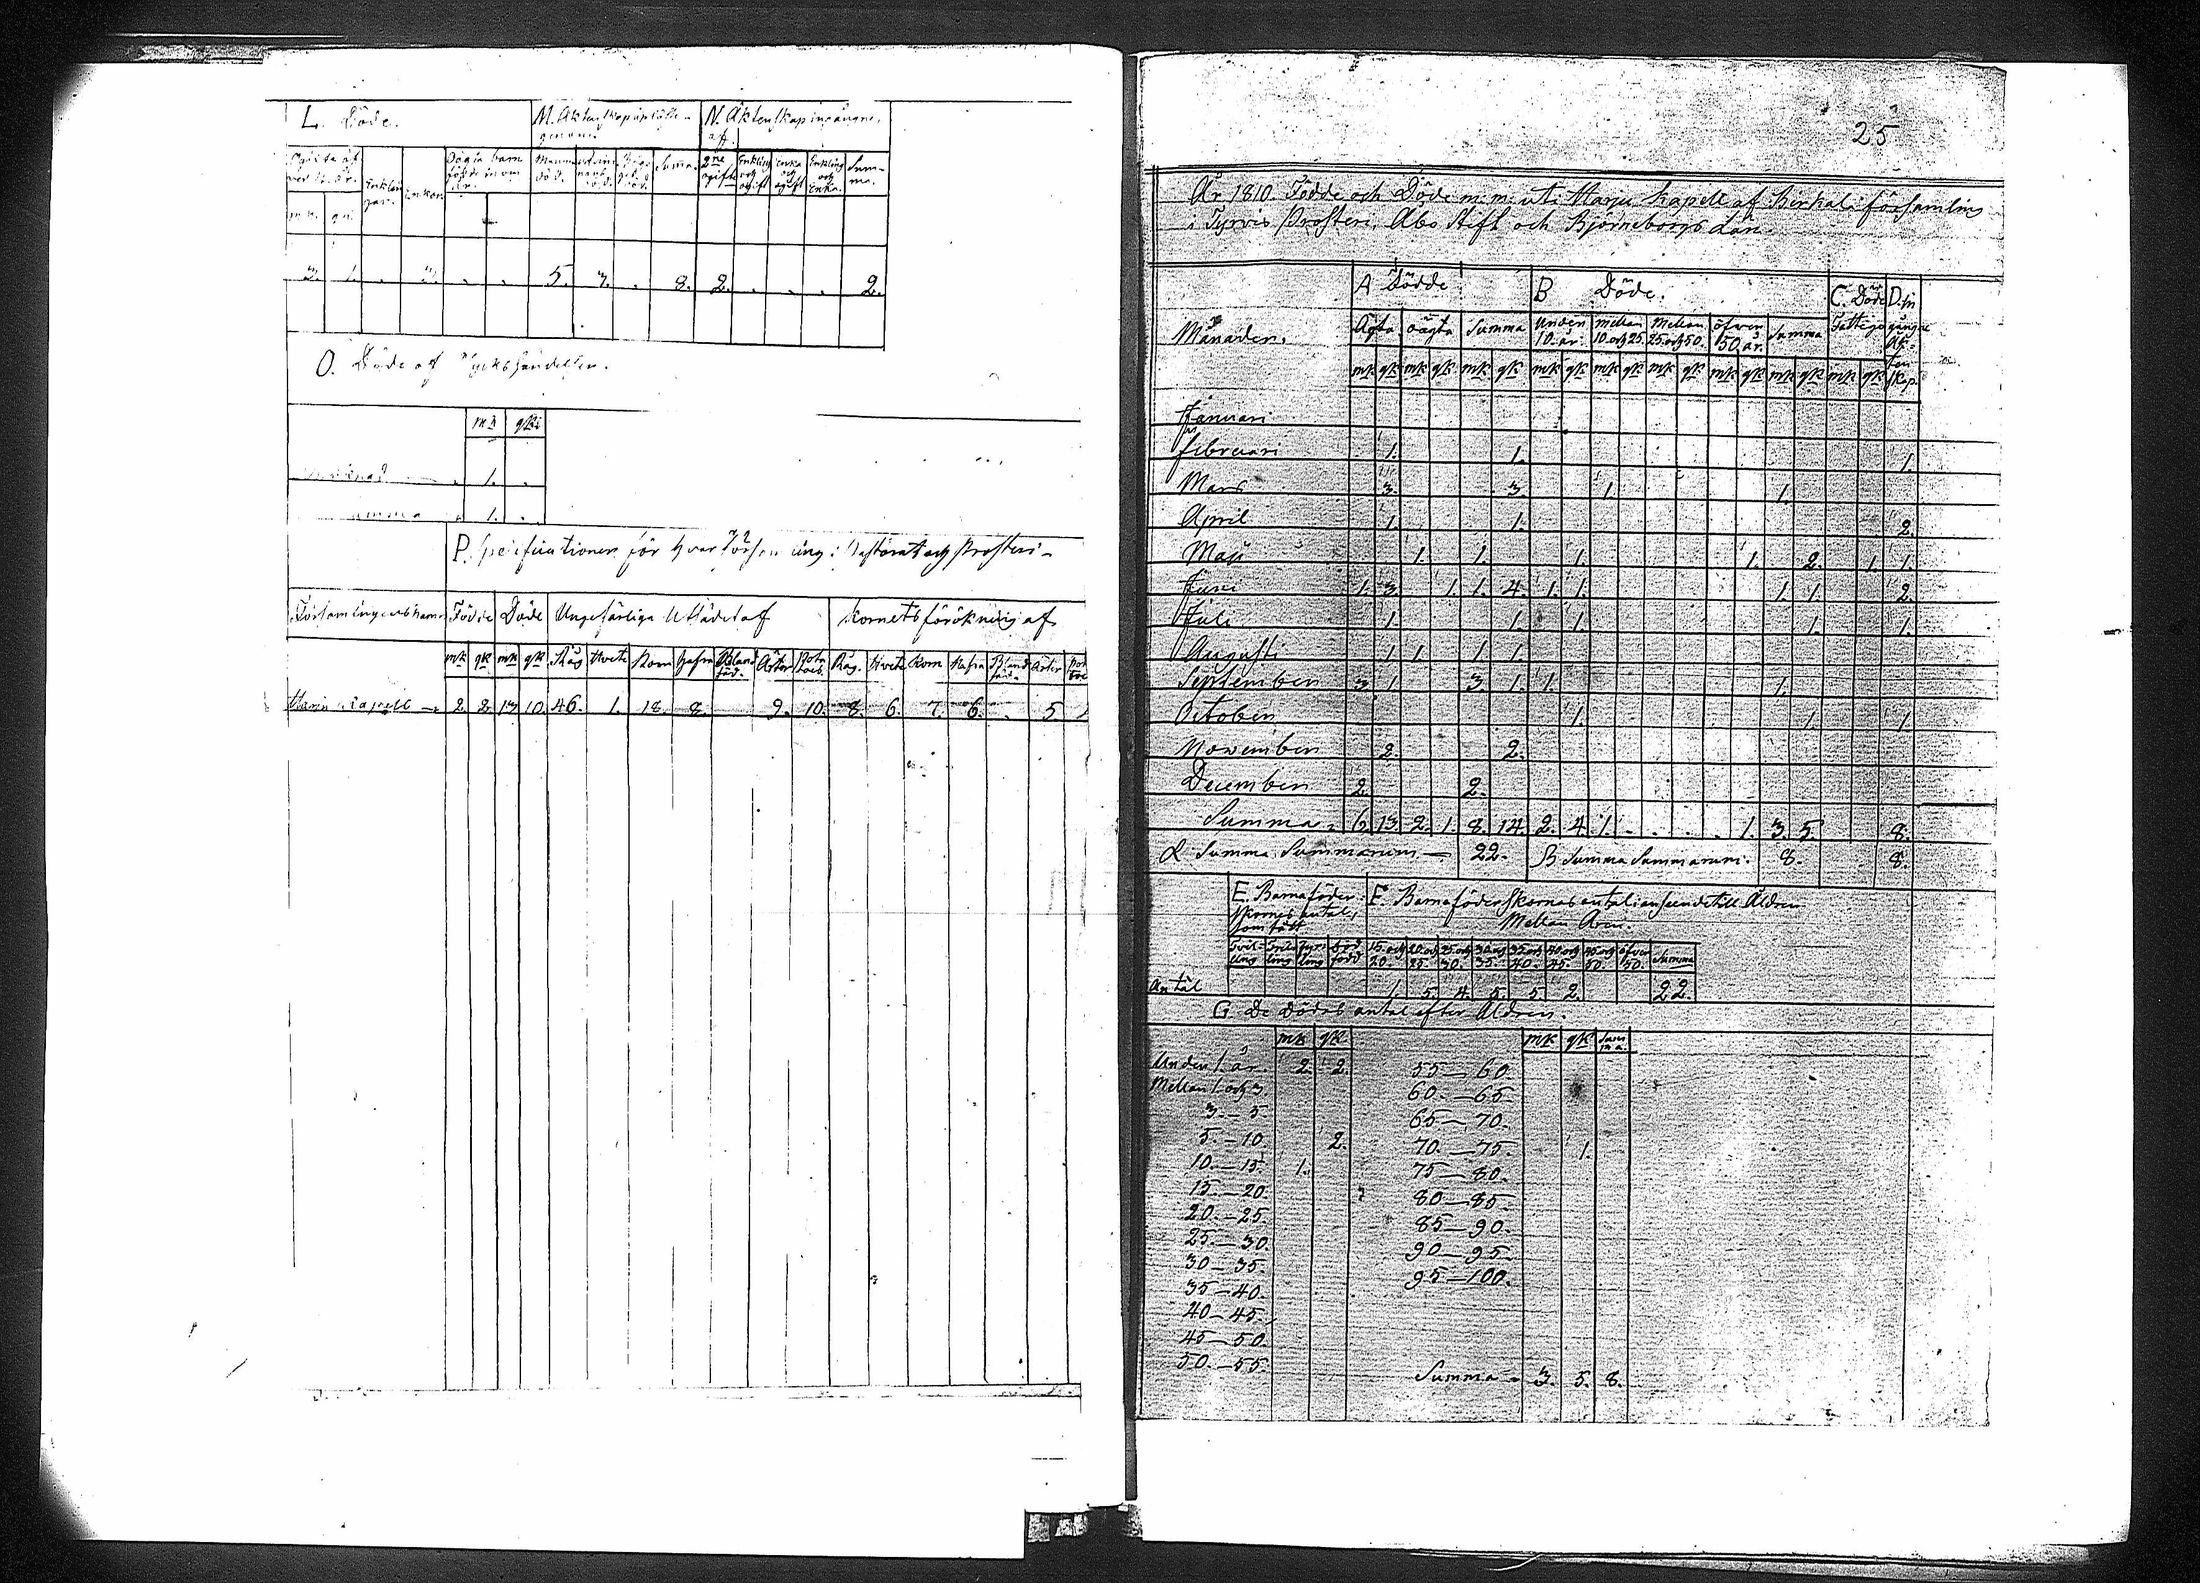 L. Döde.
M. Äktenskap uplöste genom
N. Äktenskap ingångne, af
Enklingar. Enkor. Oägta barn födde inom år.
Mannens död. Summa. 2ne ogifte Enkling och ogift Enka och ogift Enkling och Enka. Summa.
mk. qk.
3. 1. . 3. . . 5. 3. . 8. 2. . . . 2.
O. Döde af Olyckshändelser.
mk qk
1. .
Summa 1. .
P. Specificationen för hvar Församling i Pastorat och Prosteri
Församlingens namn Födde Döde Ungefärliga Utsädet af Kornets förökning af
mk qk mk qk Råg Hvete Korn Hafra Blandsäd. Ärter Potatoes. Råg. Hvete Korn Hafra Blandsäd. Ärter
Harju Capell 2. 2. 13 10. 46. 1. 18. 8. 9. 10. 8. 6. 7. 6. . 5
25
År 1810. Födde och Döde m. m. uti Harju Kapell af Birkala församling
i Tyrvis Prosteri, Åbo Stift och Björneborgs Län.
A Födde B Döde. C. Döde D. In
Månaden. Ägta oägta Summa Under 10. år. Mellan 10. och 25. Mellan 25. och 50. öfver 50 år. Summa Fattige gångne Äktenskap.
mk qk mk qk mk qk mk qk mk qk mk qk mk qk mk qk mk qk
Januari
Februari 1. 1. 1.
Mars 3. 3. 1. 1.
April 1. 1. 2.
Maji 1. 1. 1. 1. 2. 1. 1.
Juni 1. 3. 1. 1. 4. 1. 1. 1. 1. 2.
Juli 1. 1. 1. 1. 1.
Augusti 1. 1. 1. 1.
September 3. 1. 3. 1. 1. 1.
October 1. 1. 1
November 2. 2.
December 2. 2.
Summa 6. 13. 2. 1. 8. 14. 2. 4. 1. . . . . 1. 3. 5. 8.
A Summa Summarum 22. B Summa Summarum. 8. 8.
E. Barnaföderskornas antal, som fått F. Barnaföderskornas antal i anseende till Åldren
Mellan Åren.
Tvilling Trilling Fyrling Dödfödd 15. och 20. 20. och 25. 25 och 30. 30 och 35. 35 och 40. 40 och 45. 45 och 50. öfver 50. Summa
Antal 1. 5. 4. 5. 5. 2. 22.
G. De Dödas antal efter Åldren.
mk qk mk qk Summa.
Under 1. år. 2. 2. 55 — 60
Mellan 1. och 3. 60. — 65
3. — 5 65 — 70.
5. — 10 2. 70. — 75. 1.
10. — 15 1. 75 — 80.
15. — 20. 80 — 85.
20. — 25. 85 — 90.
25. — 30. 90 — 95
30 — 35. 95 — 100.
35 — 40.
40 — 45.
45 — 50.
50. — 55. Summa 3. 5. 8.